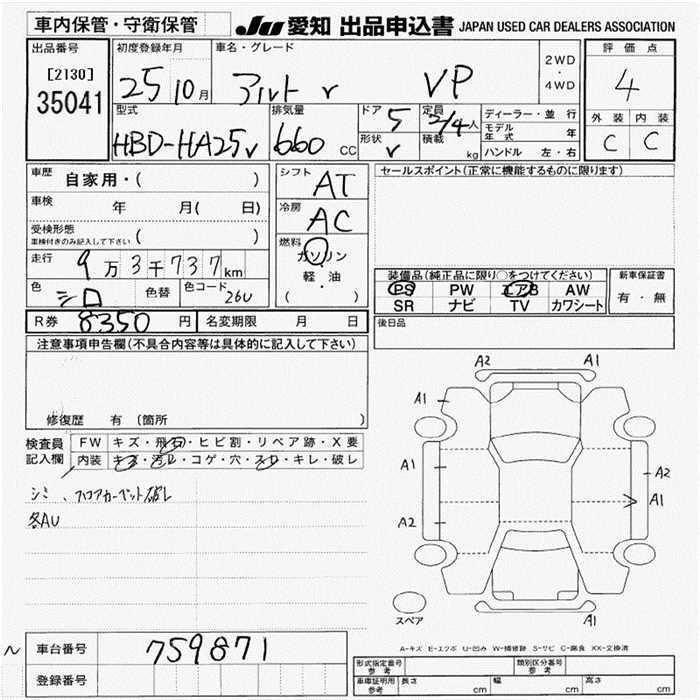 車内保管・守衛保管
JU 愛知 出品申込書 JAPAN USED CAR DEALERS ASSOCIATION
出品番号
[2130]
35041
初度登録年月
25 10月
車名・グレード
アルト r VP
2WD
・
4WD
評価点
4
外装 内装
C C
型式
HBD-HA25V
排気量
660 CC
ドア 5
形状 V
定員 2/4人
積載 kg
ディーラー・並行
モデル年式 年
ハンドル 左・右
車歴 自家用・( )
車検 年 月( 日)
受検形態
車検付きのみ記入して下さい ( )
走行 9万3千737km
色 シロ 色替 色コード 26U
R券 8350 円 名変期限 月 日
シフト AT
冷房 AC
燃料
ガソリン
・
軽・油
( )
セールスポイント(正常に機能するものに限ります)
装備品(純正品に限り〇をつけてください)
PS PW エアB AW
SR ナビ TV カワシート
新車保証書
有・無
後日品
注意事項申告欄(不具合内容等は具体的に記入して下さい)
修復歴 有 (箇所 )
検査員記入欄
FW キズ・飛石・ヒビ割・リペア跡・X要
内装 キズ・汚レ・コゲ・穴・スレ・キレ・破レ
シミ、フロアカーペット破レ
各AU
A2 A1
A1
A1
A2
A1
A2
A1
スペア
A-キズ E-エクボ U-凹み W-補修跡 S-サビ C-腐食 XX-交換済
車台番号 759871
登録番号
型式指定番号
参考
類別区分番号
参考
車庫証明用
参考
長さ cm 幅 cm 高さ cm